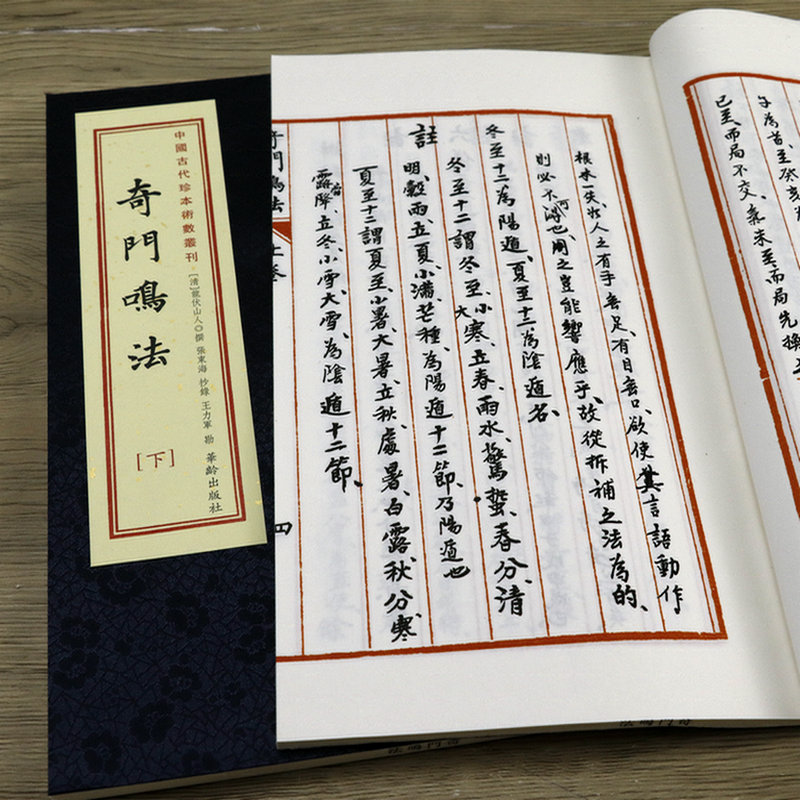 中國古代珍本術數叢刊
奇門鳴法
[清]龍伏山人◎撰 張東海 抄錄 王力軍 勘
華齡出版社
[下]
已至、而局不交、氣未至而局先換
根本一失、如人之有手無足、有目無口、欲使其言語動作
則必不可得也、用之豈能響應乎、故從拆補之法為的、
冬至十二為陽遁、夏至十二為陰遁名、
冬至十二謂冬至、小寒、大寒、立春、雨水、驚蟄、春分、清
註
明、穀雨、立夏、小滿、芒種、為陽遁十二節、乃陽遁也
夏至十二謂夏至、小暑、大暑、立秋、處暑、白露、秋分、寒
露、霜降、立冬、小雪、大雪、為陰遁十二節、
奇門鳴法
上卷
四
奇門鳴法